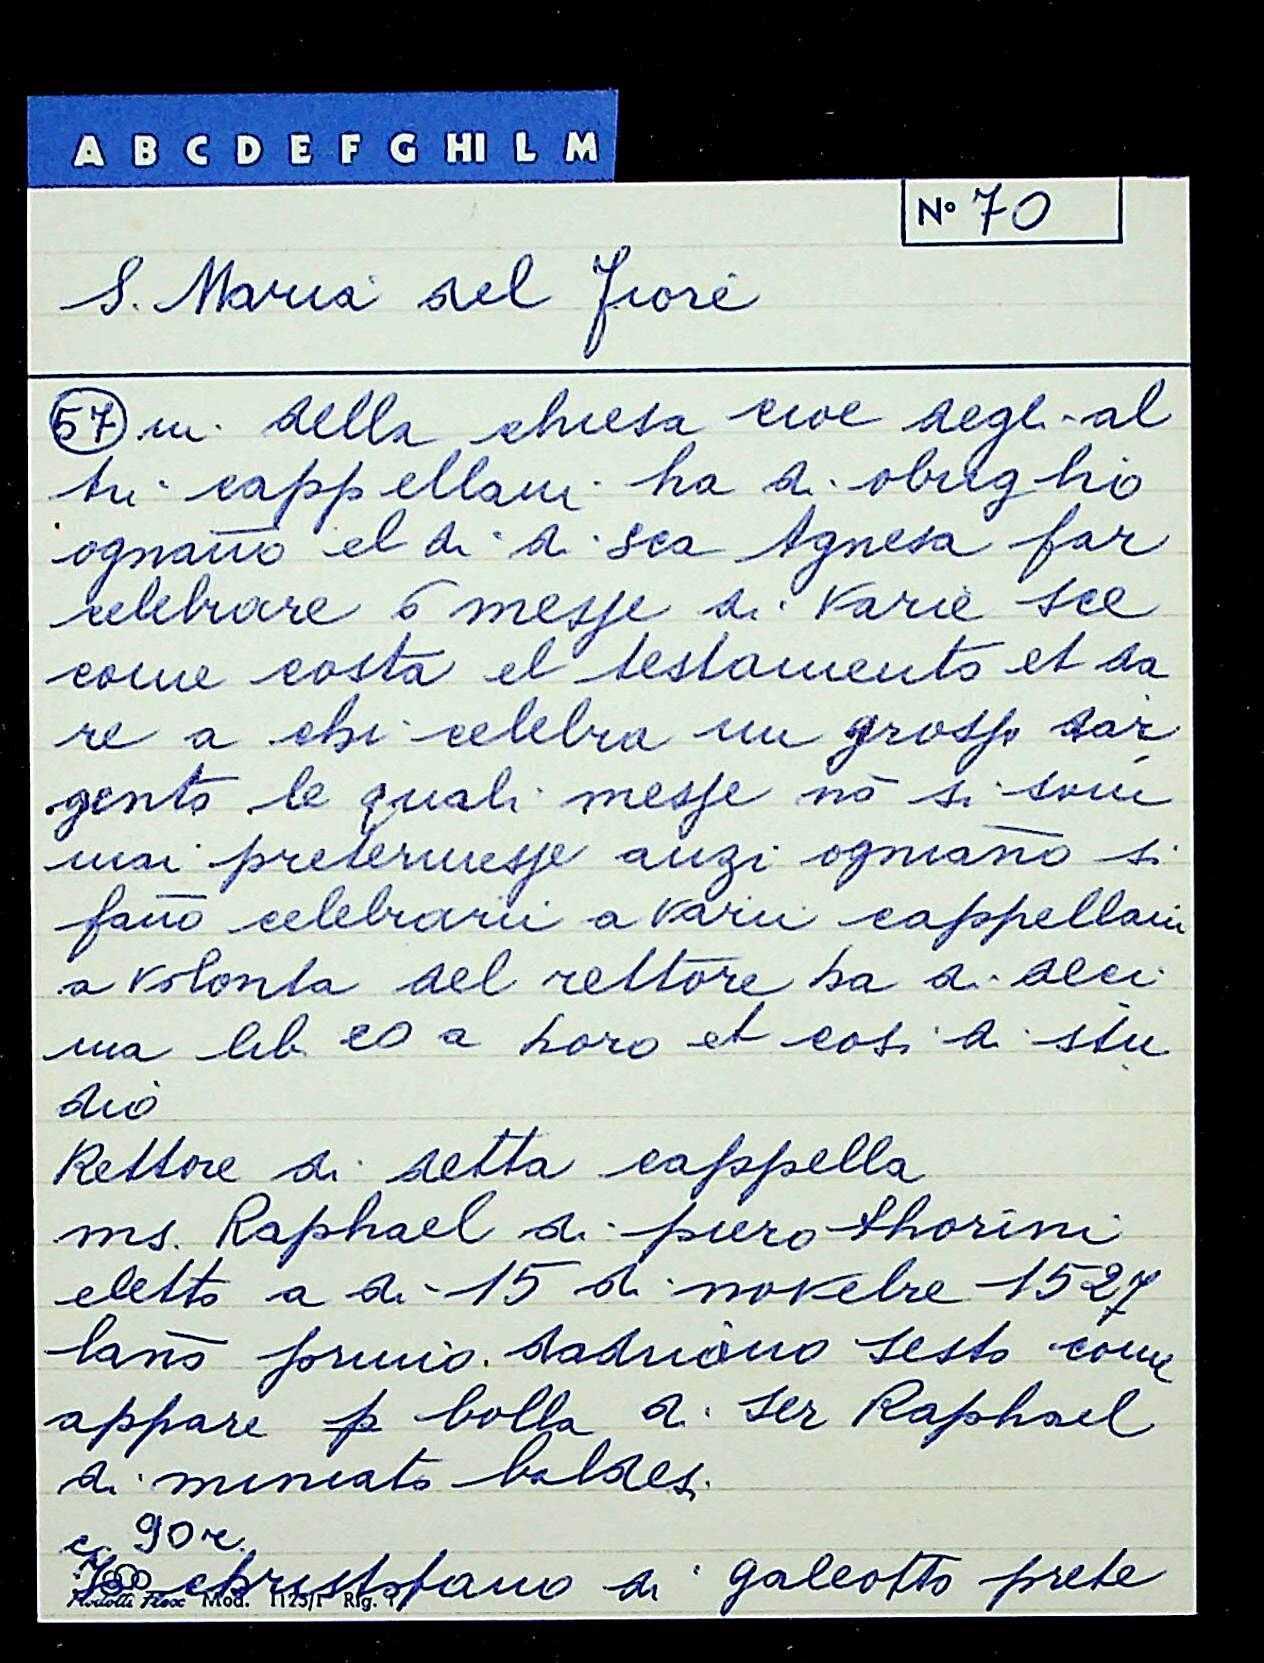 A B C D E F G HI L M
Nº 70
S. Maria del Fiore
57 ni della chiesa cioe degli al
tri cappellani ha di obrigho
ognaño el di di sca Agnesa far
celebrare 6 messe di varie sce
come costa el testamento et da
re a chi celebra un grosso dar
gento le quali messe nō si sono
mai pretermesse anzi ogniaño si
faño celebrarii a varii cappellani
a volonta del rettore ha di deci
ma lib. co a horo et cosi di stu
dio
Rettore di detta cappella
ms. Raphael di piero thorini
eletto a di 15 di novebre 1527
lanō primo dadriano sesto come
appare p bolla di ser Raphael
di miniato baldesi
c. 90 r.
Jo christofano di galeotto prete
Mod. 1125/1 Rig. 1